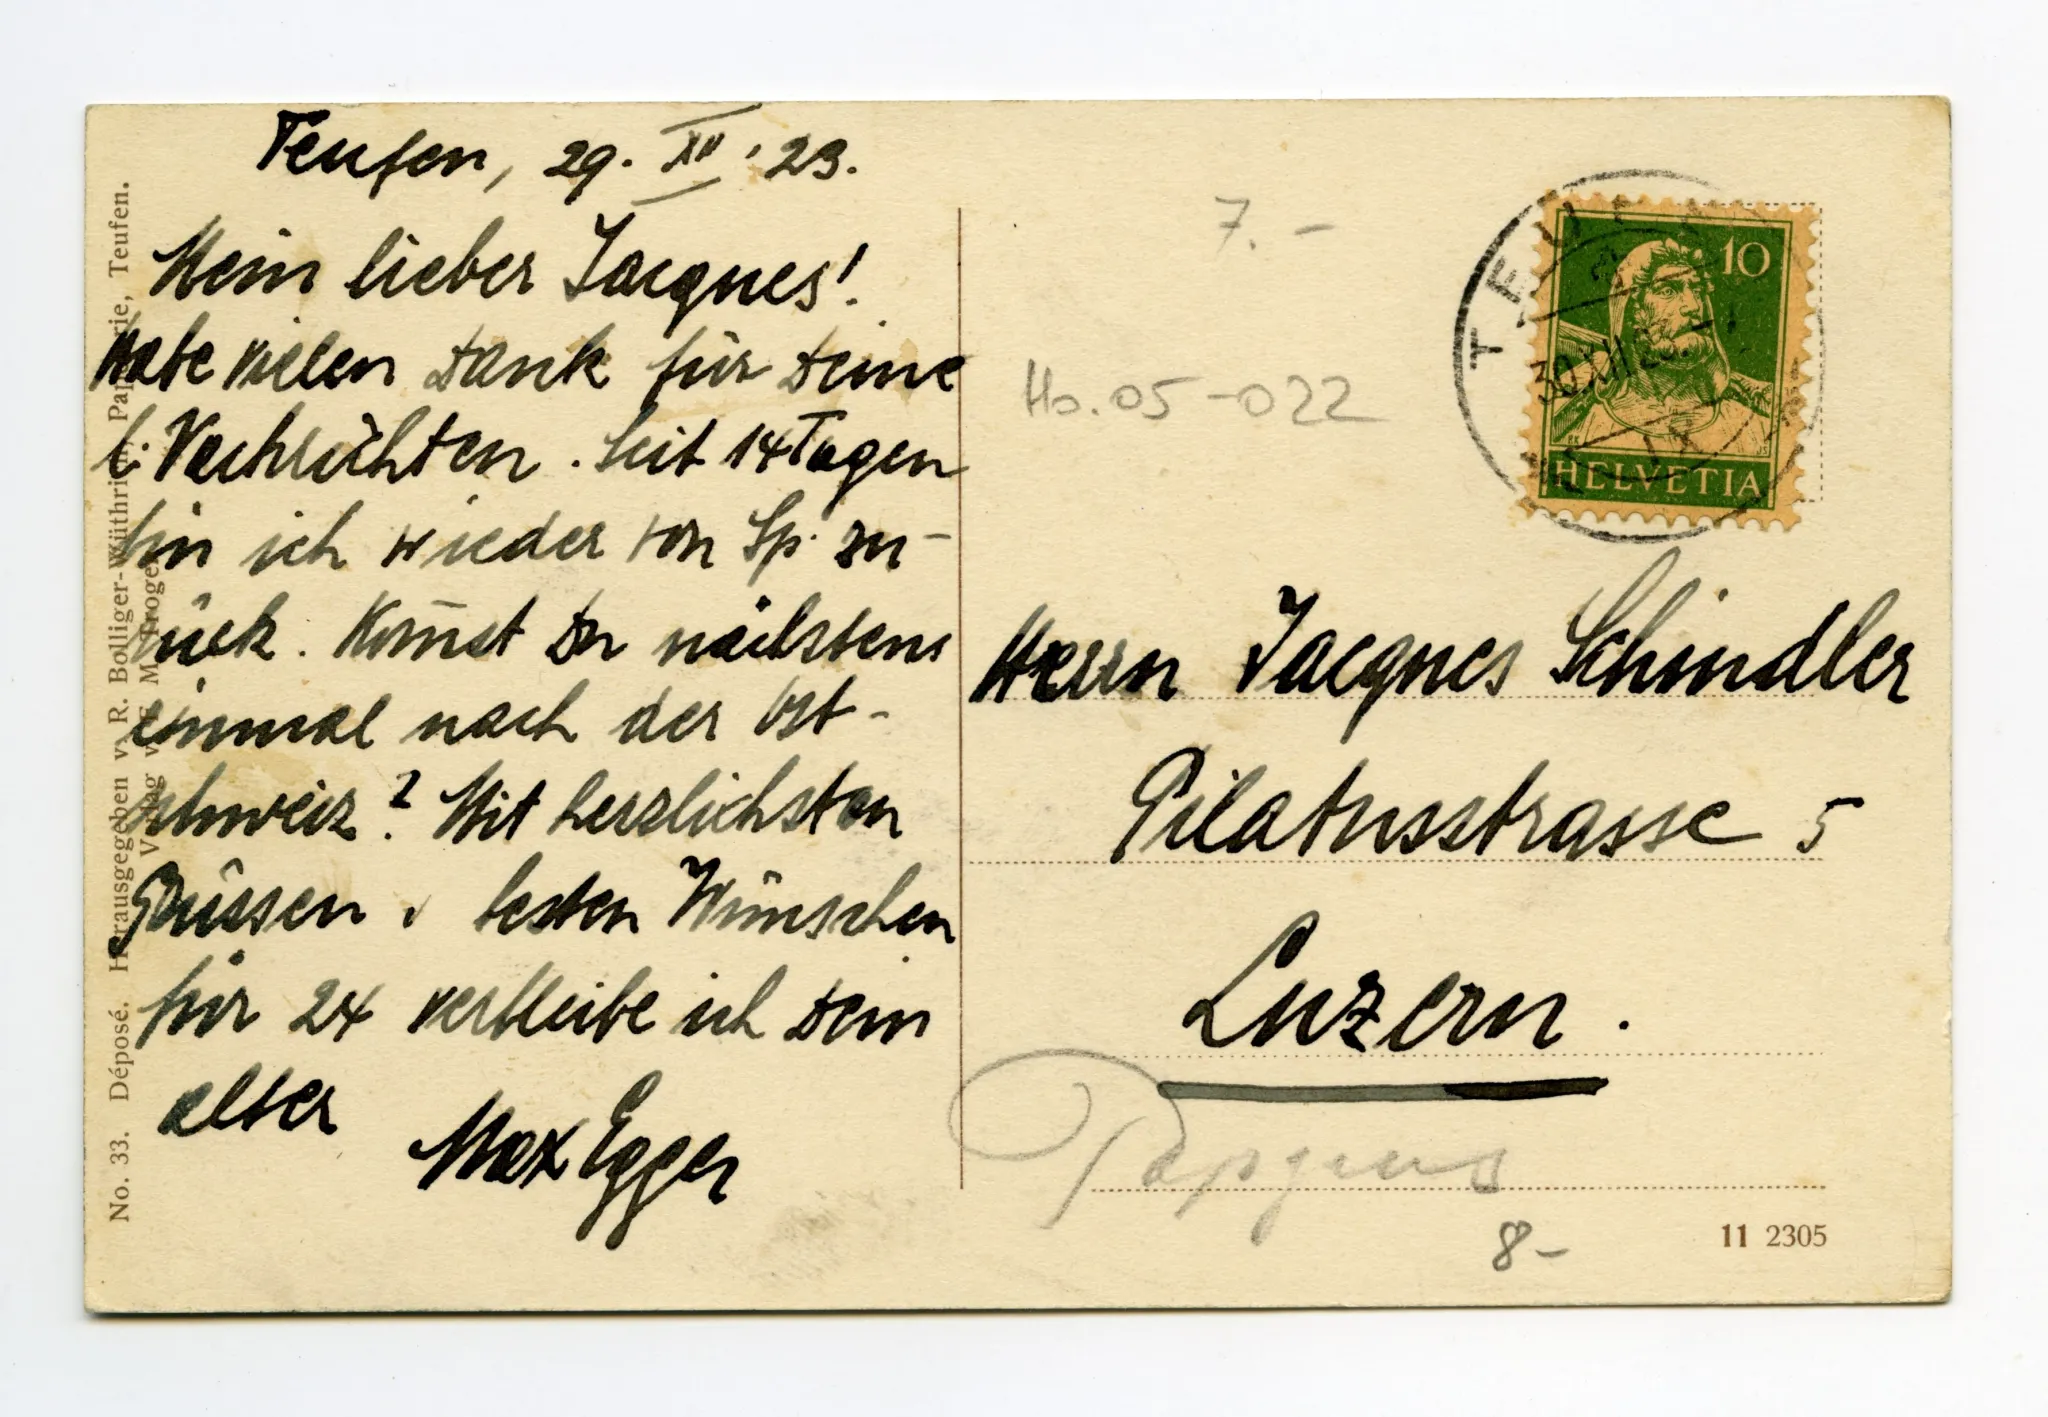 Teufen, 29. XII. 23.
Mein lieber Jacques!
Habe vielen Dank für Deine
l. Nachrichten. Seit 14 Tagen
bin ich wieder von Sp. zu-
rück. Kom̄st Du nächstens
einmal nach der Ost-
schweiz? Mit herzlichsten
Grüssen u. besten Wünschen
für 24 verbleibe ich Dein
alter
Max Egger
No. 33. Déposé. Herausgegeben v. R. Bolliger-Wüthrich, Papeterie, Teufen.
Verlag v. E. M. Froge
7.-
Ho. 05-022
TEUFEN
30.XII.23.
10
HELVETIA
Herrn Jacques Schindler
Pilatusstrasse 5
Luzern.
8-
11 2305